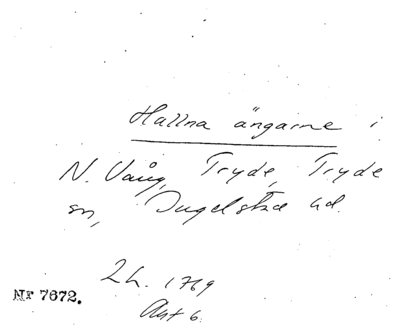 Hallna ängarne i
N. Vång, Tryde, Tryde
sn, Ingelstad hd.
Lh. 1769
Akt 6.
Nr 7672.